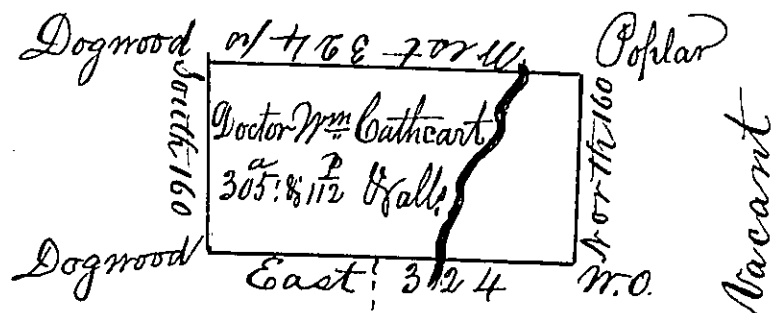 Dogwood West 324 p Poplar
South 160
Doctor Wm Cathcart
305 a & 112 p & all.
North 160
Vacant
Dogwood East 324 W.O.